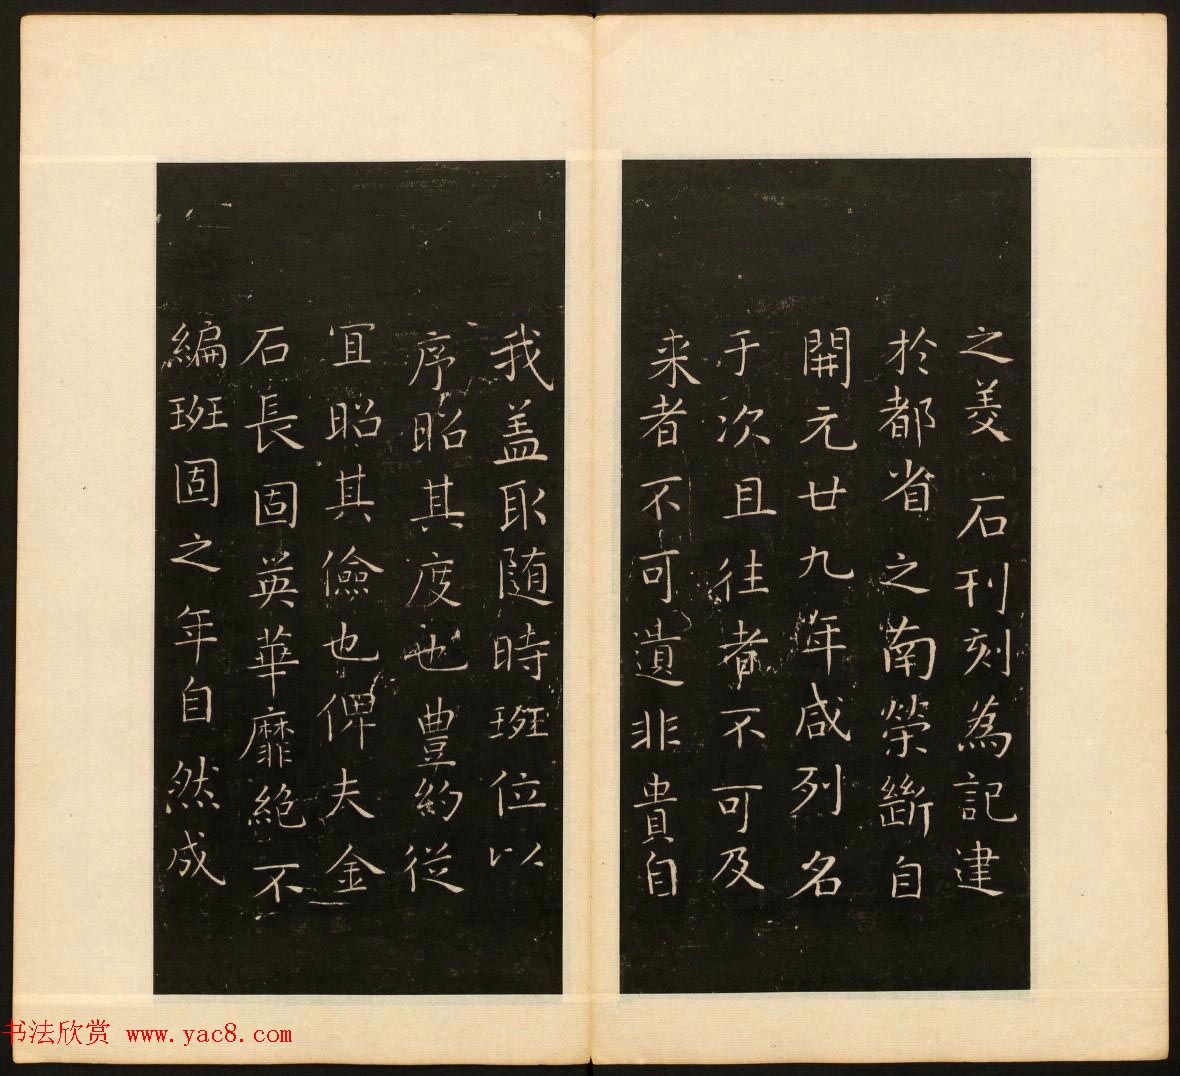 之美石刊刻為記建
於都省之南榮斷自
開元廿九年咸列名
于次且往者不可及
来者不可遺非貴自
我盖取随時班位以
序昭其度也豊約従
宜昭其儉也俾夫金
石長固英華靡絶不
編班固之年自然成
书法欣赏 www.yac8.com